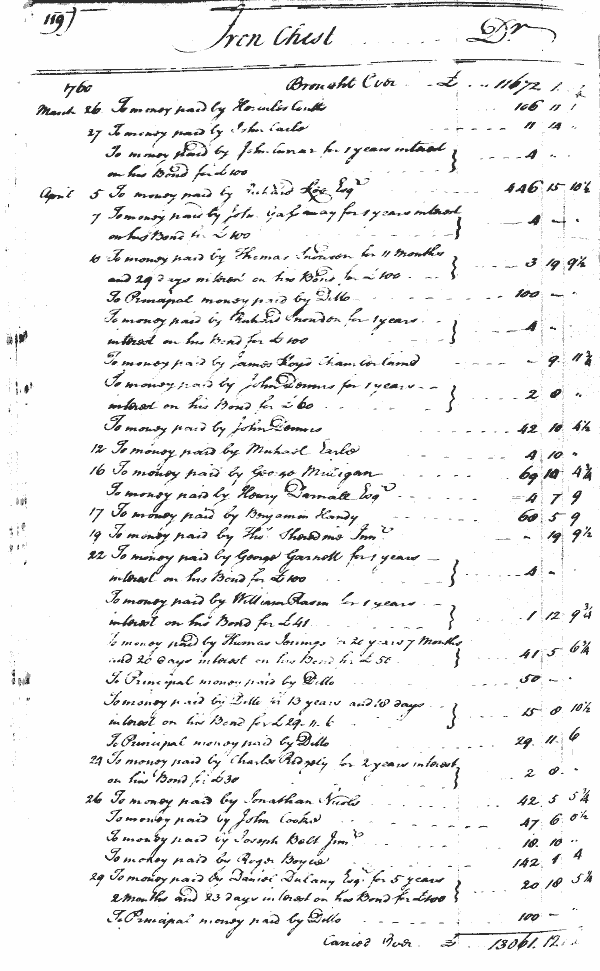 119)
Iron Chest Dr
1760 Brought Over £ 11672 1
March 26 To money paid by Hercules 106 11 1
27 To money paid by John 11 14 "
To money paid by John for 1 years interest
on his Bond for £100 4 " "
April 5 To money paid by Richard Esqr 446 15 10½
7 To money paid by John for 1 years interest
on his Bond for £100 4 - "
10 To money paid by Thomas Snowden for 11 Months
and 29 days interest on his Bond for £100 3 19 9½
To Principal money paid by Ditto 100 - "
To money paid by Richard Snowden for 1 years
interest on his Bond for £100 4 " "
To money paid by James Lloyd Chamberlaine - 9 11¾
To money paid by John Dennis for 1 years
interest on his Bond for £60 2 8 "
To money paid by John Dennis 42 10 4½
12 To money paid by Michael Earle 4 10 "
16 To money paid by George 69 14 4¾
To money paid by Henry Darnall Esqr 4 7 9
17 To money paid by Benjamin Handy 60 5 9
19 To money paid by Thos Junr - 19 9½
22 To money paid by George Garnett for 1 years
interest on his Bond for £100 4 - "
To money paid by William Rasin for 1 years
interest on his Bond for £41 1 12 9¾
To money paid by Thomas Jennings for 20 years 7 Months
and 20 days interest on his Bond for £50 41 5 6¾
To Principal money paid by Ditto 50 - "
To money paid by Ditto for 13 years and 18 days
interest on his Bond for £29.11.6 15 8 10½
To Principal money paid by Ditto 29 11 6
24 To money paid by Charles Ridgely for 2 years interest
on his Bond for £30 2 8 "
26 To money paid by Jonathan Nicols 42 5 5¼
To money paid by John Cooke 47 6 0½
To money paid by Joseph Belt Junr 18 10 "
To money paid by Roger Boyce 142 1 4
29 To money paid by Daniel Dulany Esqr for 5 years
2 Months and 23 days interest on his Bond for £100 20 18 5¼
To Principal money paid by Ditto 100 - "
Carried Over £ 13061 12